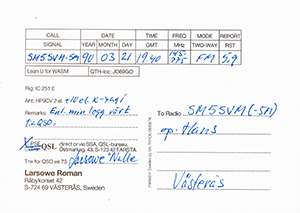 CALL SIGNAL DATE YEAR MONTH DAY TIME GMT FREQ MHz MODE TWO-WAY REPORT RST
SM5SVM-SM 90 03 21 19.40 145.775 FM 59
Lean U for WASM QTH-loc: JO89GO
Rig: IC 251 E
Ant: HP9CV 2 el. +10 el. X-yagi
Remarks: Enl. min logg vårt
1:a QSO.
X PSE QSL direct or via SSA, QSL-bureau,
Östmarksg. 43, S-123 42 FARSTA.
Tnx for QSO es 73 Larsowe "Nalle
Larsowe Roman
Råbykorset 42
S-724 69 VÄSTERÅS, Sweden
To Radio SM5SVM (-SM)
op. Hans
Västerås